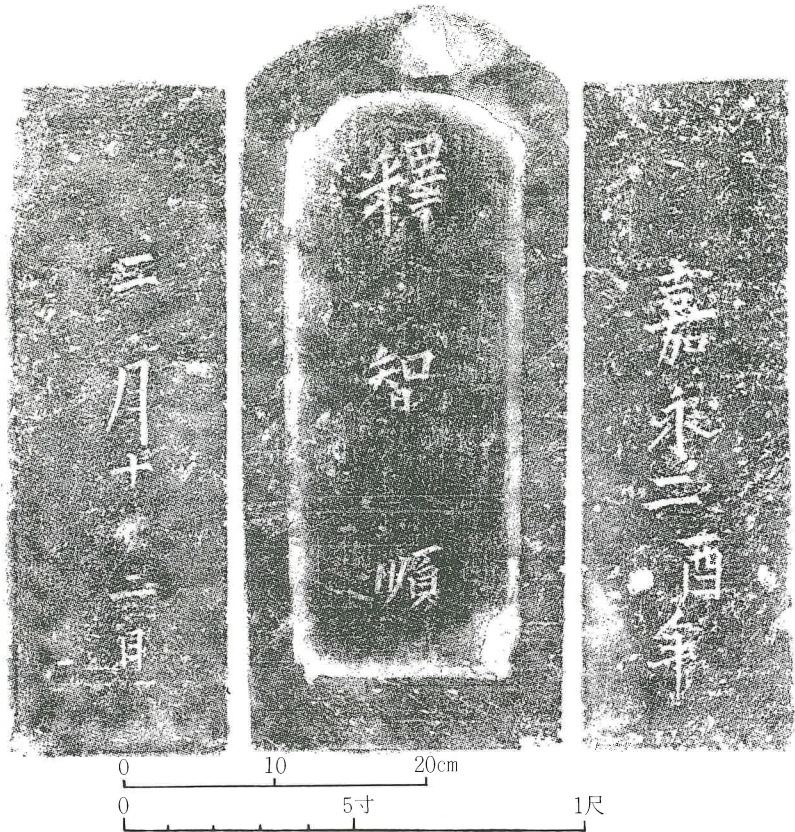 嘉永二酉年
釋智順
三月十二日
0 10 20cm
0 5寸 1尺